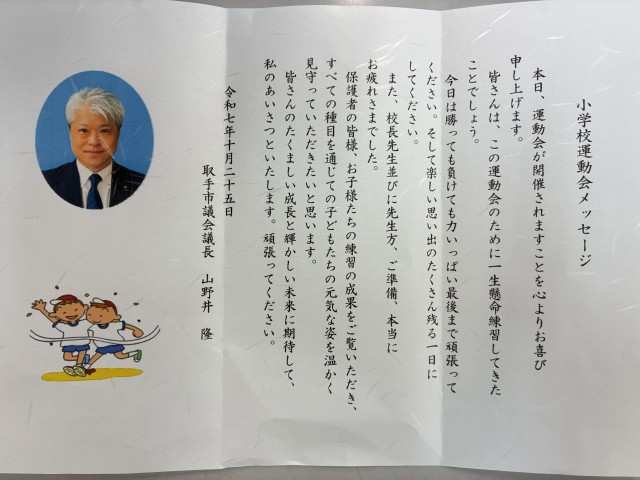 小学校運動会メッセージ
本日、運動会が開催されますことを心よりお喜び
申し上げます。
皆さんは、この運動会のために一生懸命練習してきた
ことでしょう。
今日は勝っても負けても力いっぱい最後まで頑張って
ください。そして楽しい思い出のたくさん残る一日に
してください。
また、校長先生並びに先生方、ご準備、本当に
お疲れさまでした。
保護者の皆様、お子様たちの練習の成果をご覧いただき、
すべての種目を通じての子どもたちの元気な姿を温かく
見守っていただきたいと思います。
皆さんのたくましい成長と輝かしい未来に期待して、
私のあいさつといたします。頑張ってください。
令和七年十月二十五日
取手市議会議長 山野井 隆